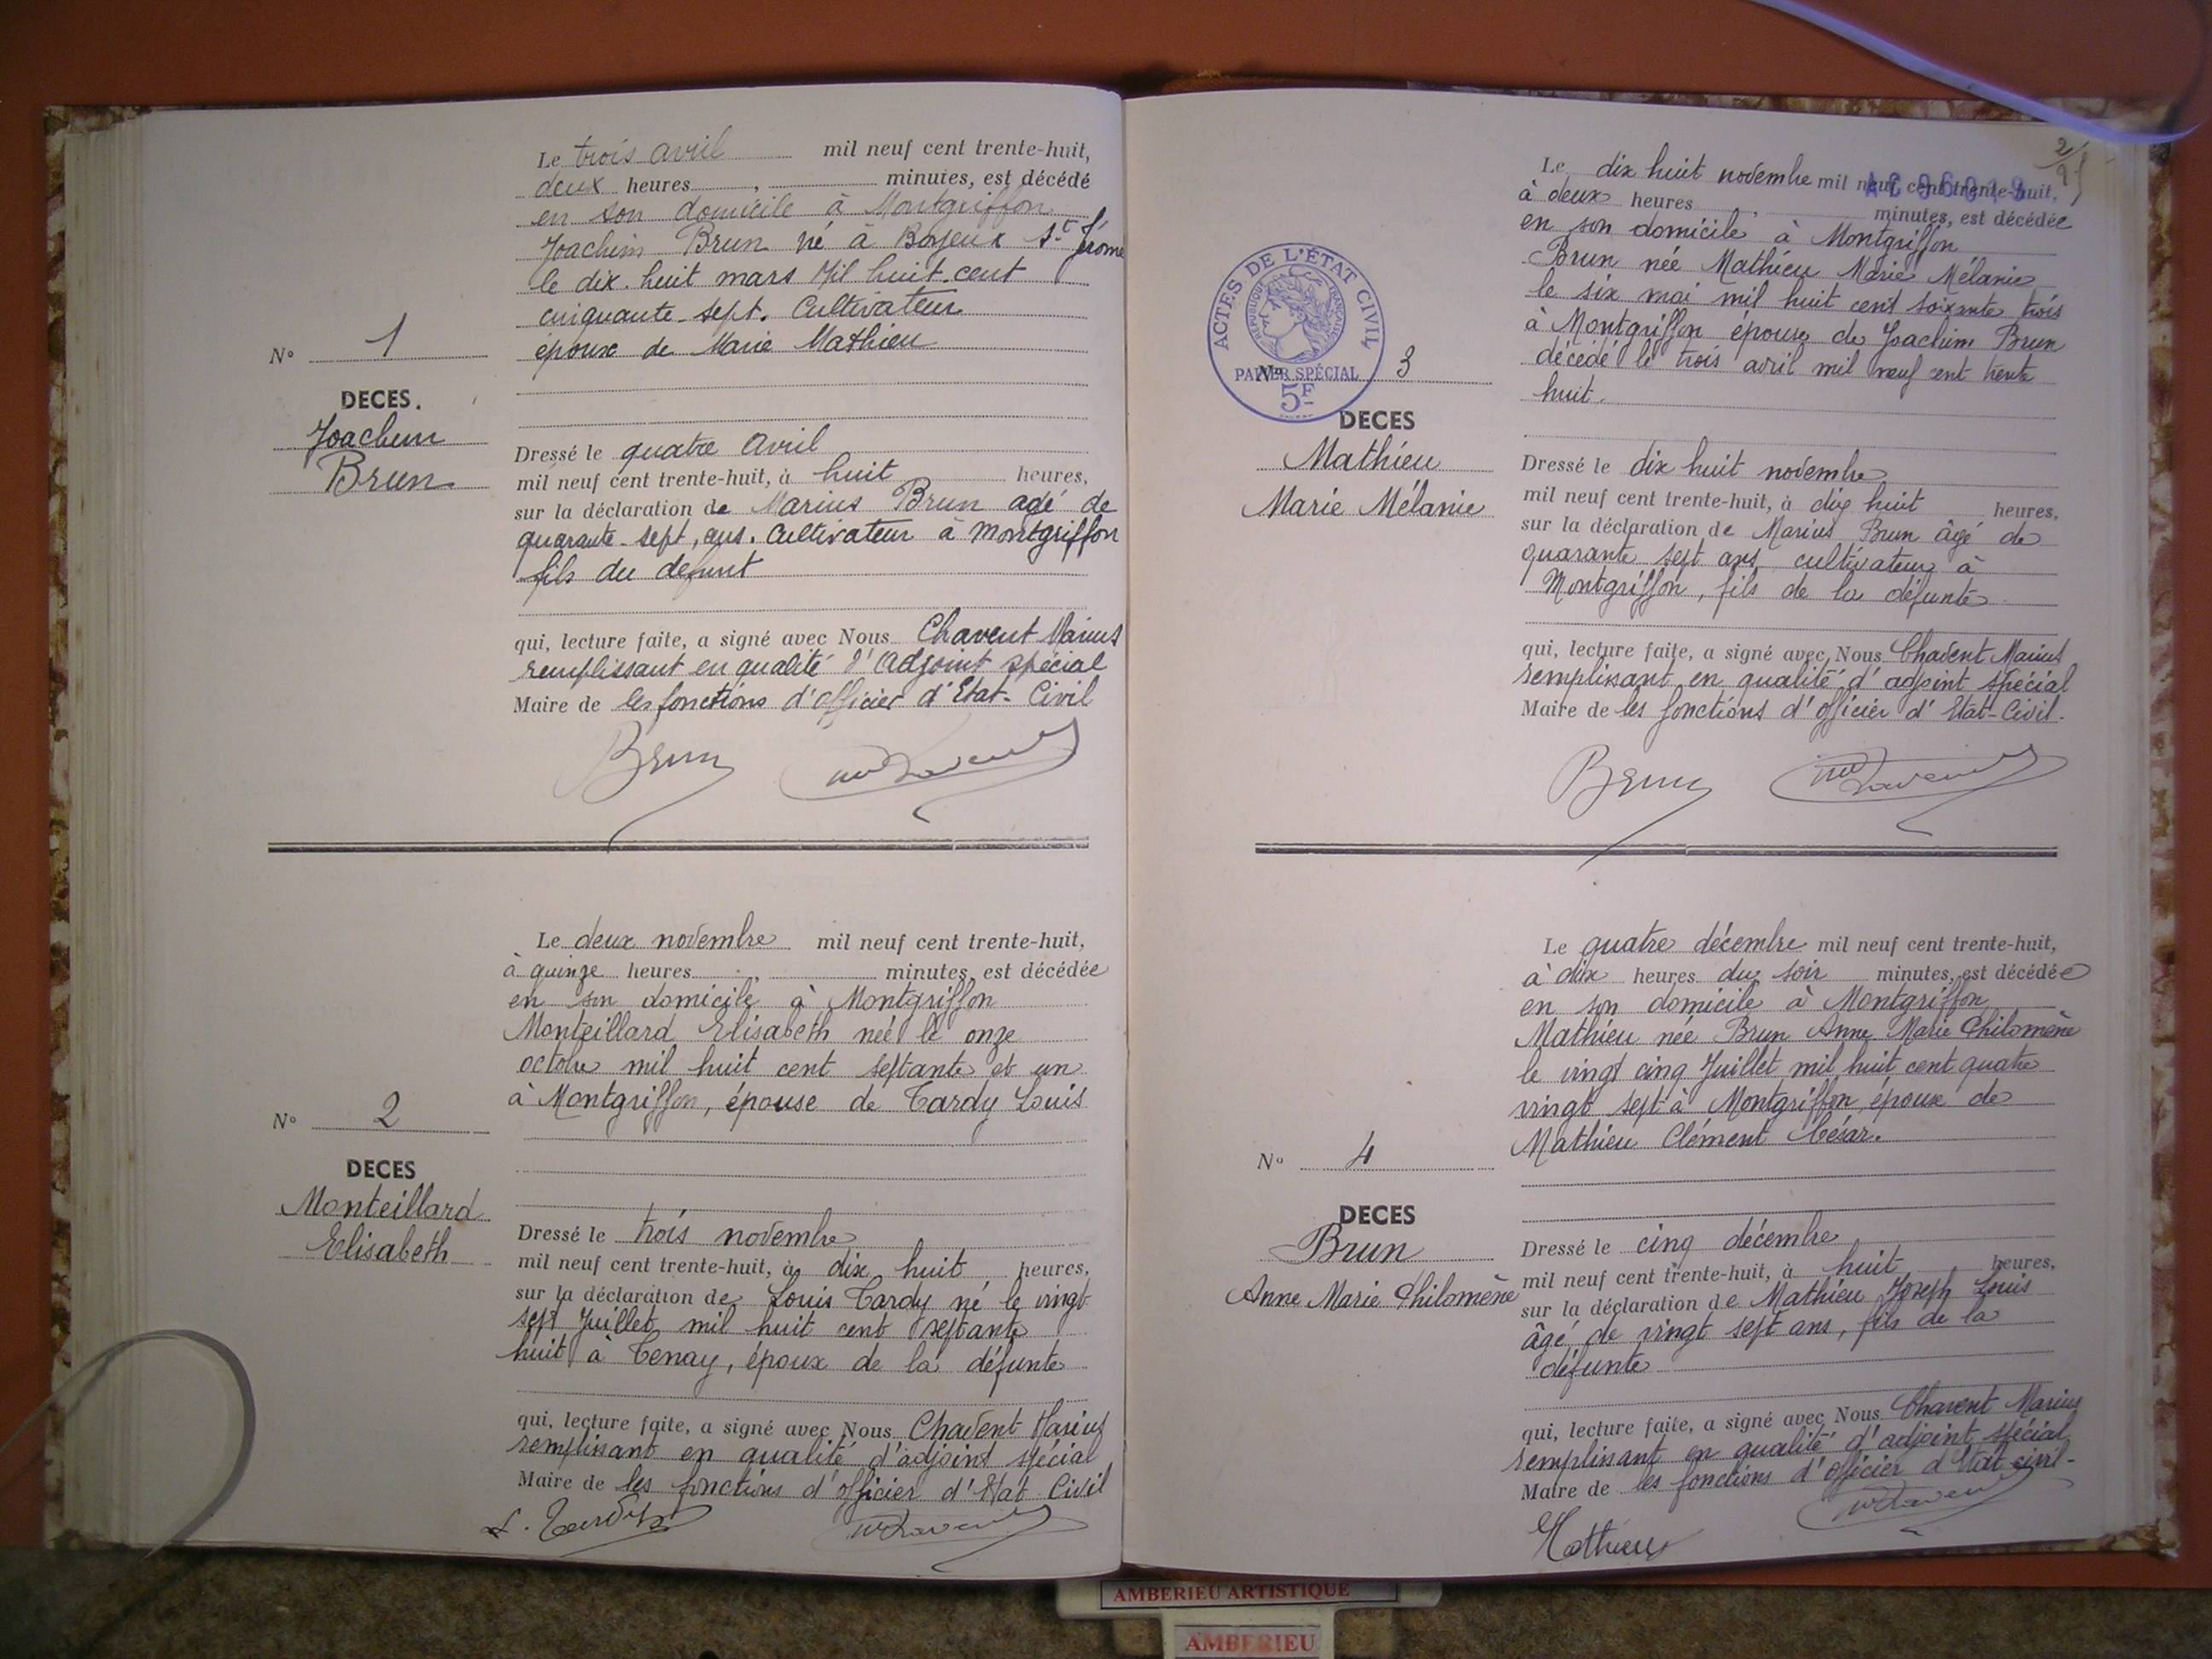 Le trois avril mil neuf cent trente-huit,
deux heures , minutes, est décédé
en son domicile à Montgriffon
Joachim Brun né à Boyeux St Jérome
le dix-huit mars Mil huit-cent
cinquante-sept. Cultivateur
époux de Marie Mathieu
N° 1
DECES.
Joachim
Brun
Dressé le quatre Avril
mil neuf cent trente-huit, à huit heures,
sur la déclaration de Marius Brun agé de
quarante-sept, ans. Cultivateur à Montgriffon
fils du defunt
qui, lecture faite, a signé avec Nous Chavent Marius
remplissant en qualité d'Adjoint spécial
Maire de les fonctions d'officier d'Etat-Civil
Brun
Le deux novembre mil neuf cent trente-huit,
à quinze heures , minutes, est décédée
en son domicile à Montgriffon
Monteillard Elisabeth née le onze
octobre mil huit cent septante et un
à Montgriffon, épouse de Tardy Louis
N° 2
DECES
Monteillard
Elisabeth
Dressé le trois novembre
mil neuf cent trente-huit, à dix huit heures,
sur la déclaration de Louis Tardy né le vingt
sept Juillet mil huit cent septante
huit à Tenay, époux de la défunte
qui, lecture faite, a signé avec Nous Chavent Marius
remplissant en qualité d'adjoint spécial
Maire de les fonctions d'officier d'Etat Civil
L. Tardy
2
Le dix huit novembre mil neuf cent trente-huit,
à deux heures minutes, est décédée
en son domicile à Montgriffon
Brun née Mathieu Marie Mélanie
le six mai mil huit cent soixante trois
à Montgriffon épouse de Joachim Brun
décédé le trois avril mil neuf cent trente
huit.
ACTES DE L'ÉTAT CIVIL
RÉPUBLIQUE FRANÇAISE
PAPIER SPÉCIAL
5F
N° 3
DECES
Mathieu
Marie Mélanie
Dressé le dix huit novembre
mil neuf cent trente-huit, à dix huit heures,
sur la déclaration de Marius Brun âgé de
quarante sept ans cultivateur à
Montgriffon, fils de la défunte
qui, lecture faite, a signé avec Nous Chavent Marius
remplissant en qualité d'adjoint spécial
Maire de les fonctions d'officier d'Etat-Civil.
Brun
Le quatre décembre mil neuf cent trente-huit,
à dix heures du soir minutes, est décédée
en son domicile à Montgriffon
Mathieu née Brun Anne Marie Philomène
le vingt cinq Juillet mil huit cent quatre
vingt sept à Montgriffon, épouse de
Mathieu Clément César.
N° 4
DECES
Brun
Anne Marie Philomène
Dressé le cinq décembre
mil neuf cent trente-huit, à huit heures,
sur la déclaration de Mathieu Joseph Louis
âgé de vingt sept ans, fils de la
défunte
qui, lecture faite, a signé avec Nous Chavent Marius
remplissant en qualité d'adjoint spécial
Maire de les fonctions d'officier d'Etat civil-
Mathieu
AMBERIEU ARTISTIQUE
AMBERIEU